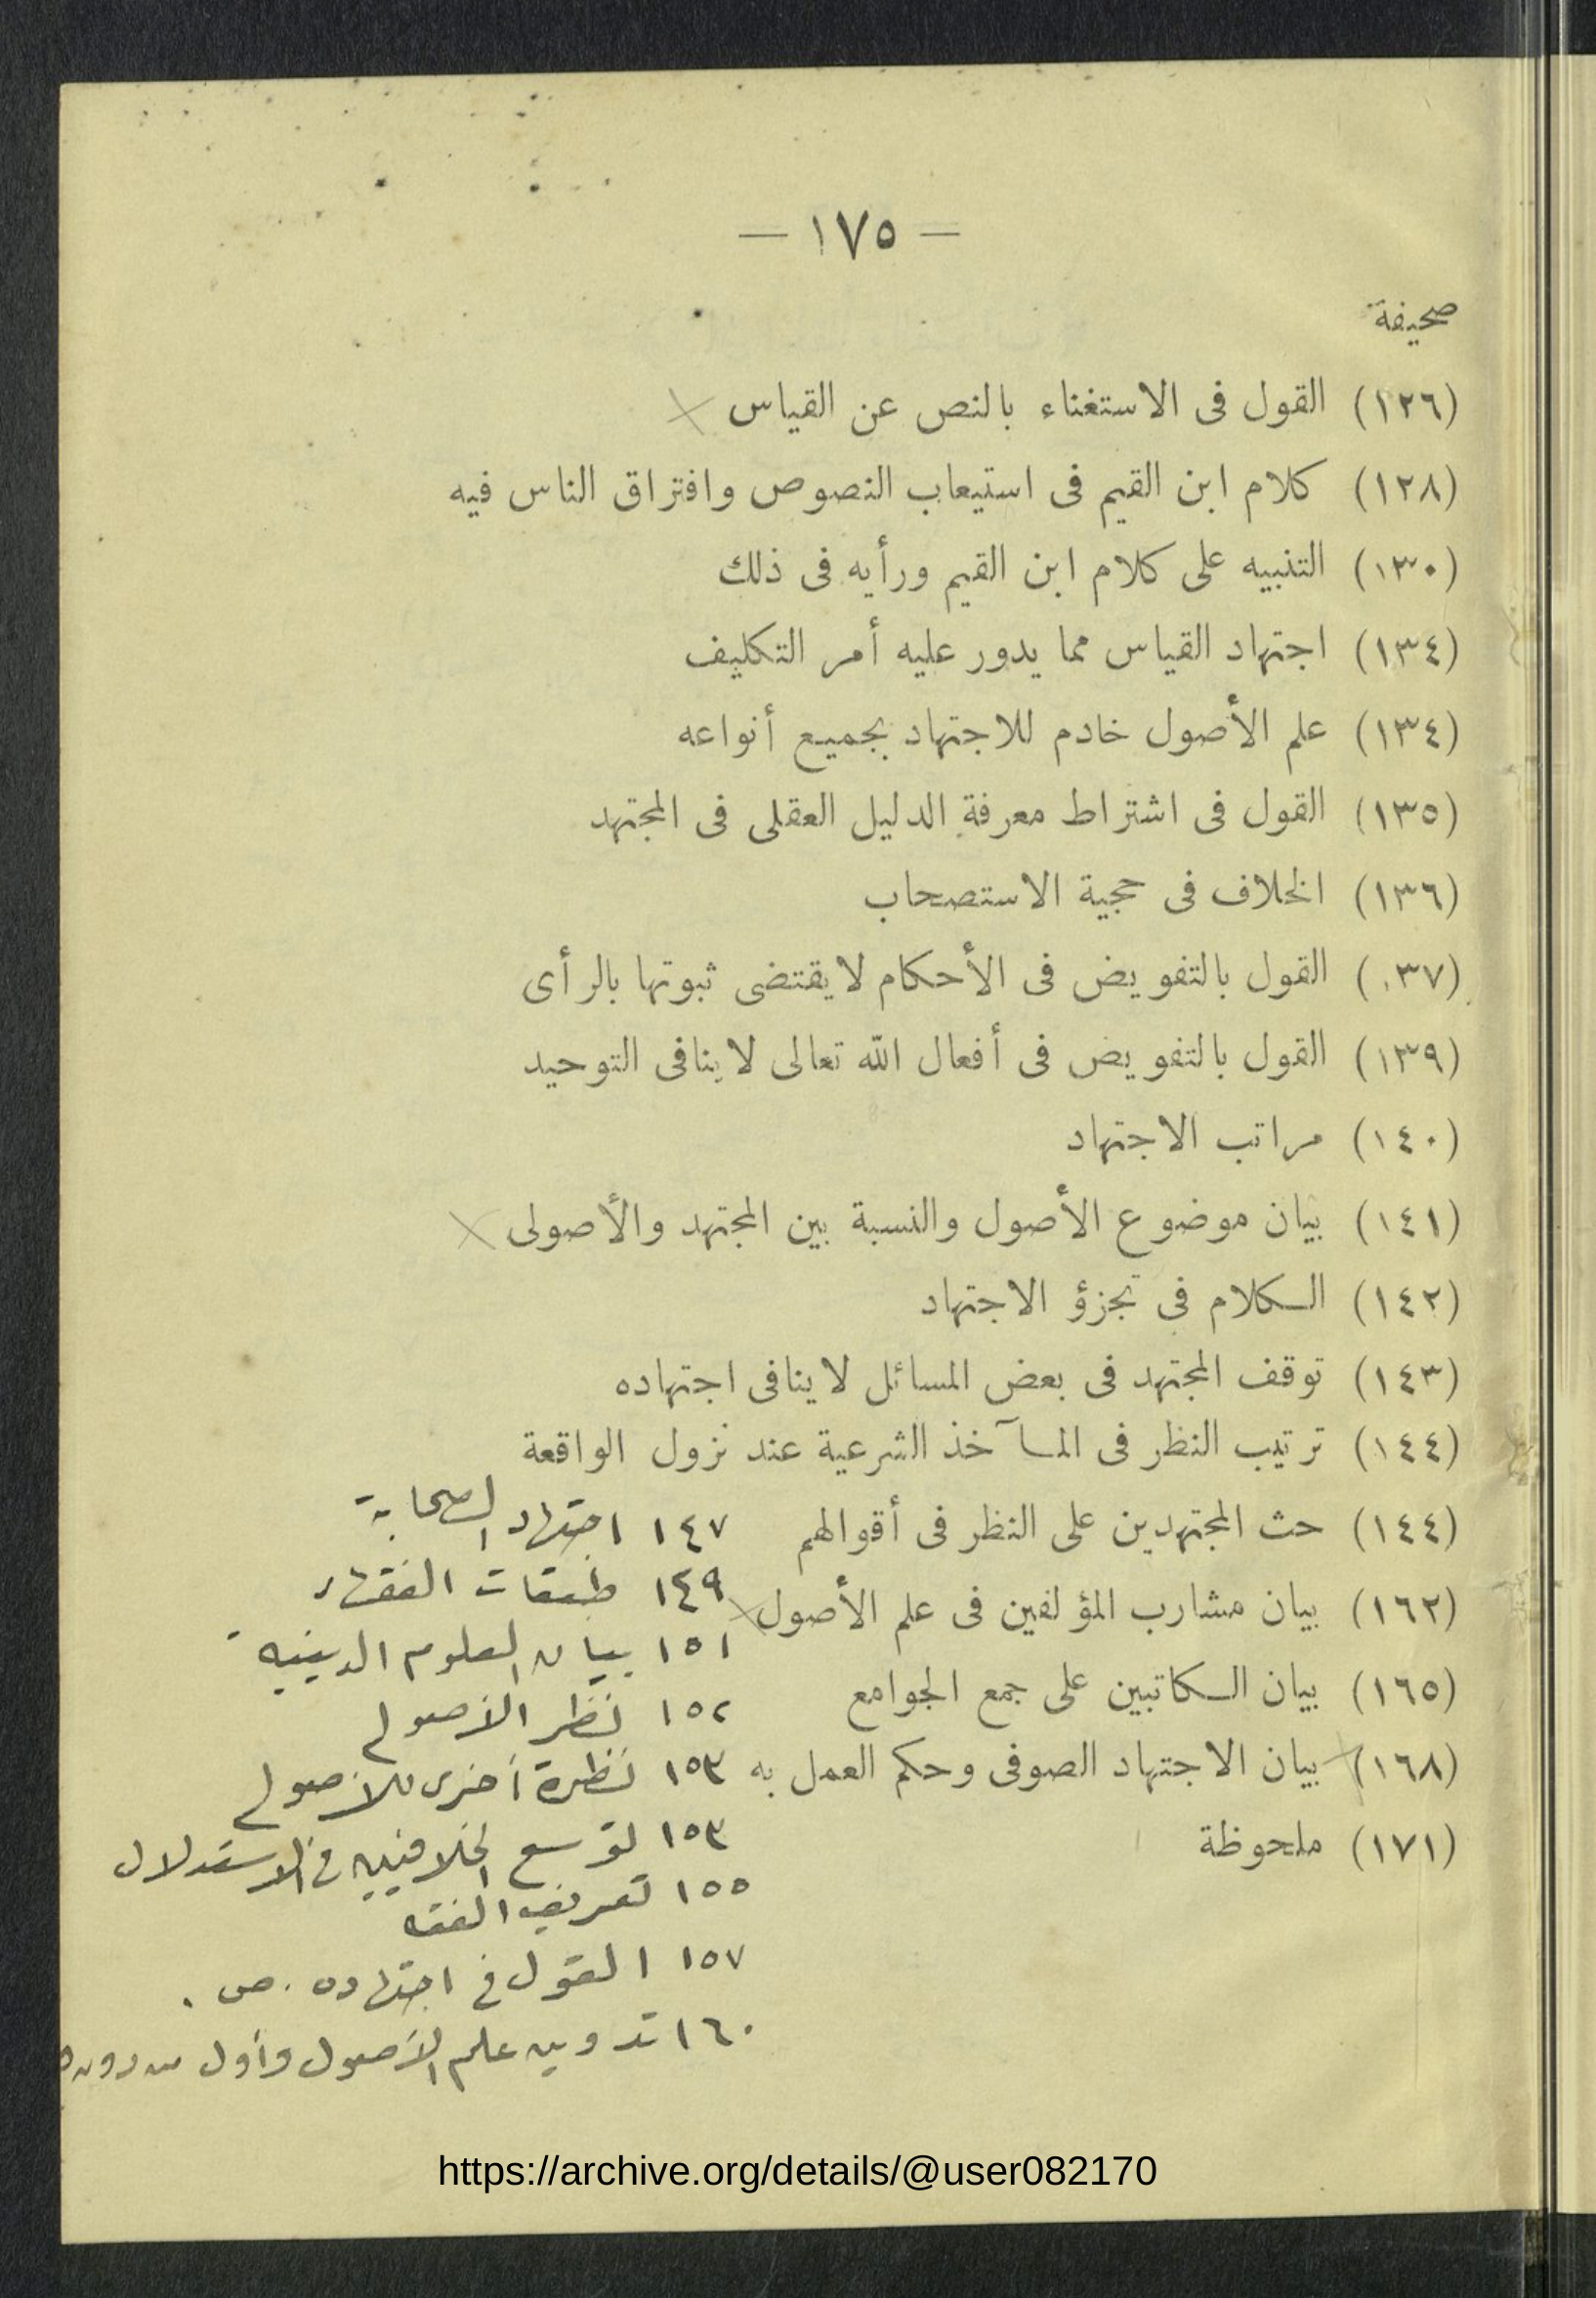 — ١٧٥ —
صحيفة
(١٢٦) القول فى الاستغناء بالنص عن القياس
(١٢٨) كلام ابن القيم فى استيعاب النصوص وافتراق الناس فيه
(١٣٠) التنبيه على كلام ابن القيم ورأيه فى ذلك
(١٣٤) اجتهاد القياس مما يدور عليه أمر التكليف
(١٣٤) علم الأصول خادم للاجتهاد بجميع أنواعه
(١٣٥) القول فى اشتراط معرفة الدليل العقلى فى المجتهد
(١٣٦) الخلاف فى حجية الاستصحاب
(٣٧ ) القول بالتفويض فى الأحكام لا يقتضى ثبوتها بالرأى
(١٣٩) القول بالتفويض فى أفعال الله تعالى لا ينافى التوحيد
(١٤٠) مراتب الاجتهاد
(١٤١) بيان موضوع الأصول والنسبة بين المجتهد والأصولى
(١٤٢) الكلام فى تجزؤ الاجتهاد
(١٤٣) توقف المجتهد فى بعض المسائل لا ينافى اجتهاده
(١٤٤) ترتيب النظر فى المآخذ الشرعية عند نزول الواقعة
(١٤٤) حث المجتهدين على النظر فى أقوالهم
(١٦٢) بيان مشارب المؤلفين فى علم الأصول
(١٦٥) بيان الكاتبين على جمع الجوامع
(١٦٨) بيان الاجتهاد الصوفى وحكم العمل به
(١٧١) ملحوظة
١٤٧ اجتهاد الصحابة
١٤٩ طبقات الفقهاء
١٥١ بيان العلوم الدينية
١٥٢ نظر الأصولي
١٥٣ نظرة أخرى للأصولي
١٥٣ توسع الخلافيين في الاستدلال
١٥٥ تعريف الفقه
١٥٧ القول في اجتهاده . ص .
١٦٠ تدوين علم الأصول وأول من دونه
https://archive.org/details/@user082170